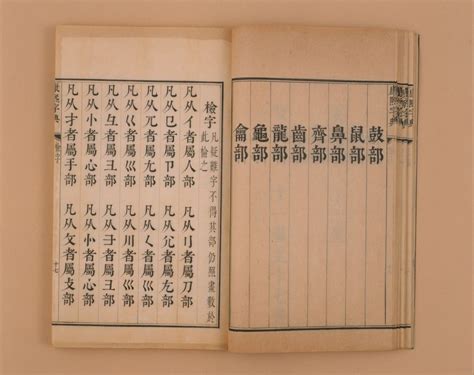 鼓部
鼠部
鼻部
齊部
齒部
龍部
龜部
龠部
檢字 凡疑難字不得其部仍照畫數於
此檢之
凡从亻者屬人部 凡从刂者屬刀部
凡从㔾者屬卩部 凡从尣者屬尢部
凡从兀者屬尢部 凡从𡿨者屬巛部
凡从巜者屬巛部 凡从川者屬巛部
凡从彑者屬彐部 凡从⺕者屬彐部
凡从忄者屬心部 凡从㣺者屬心部
凡从扌者屬手部 凡从攵者屬攴部
康熙字典 檢字